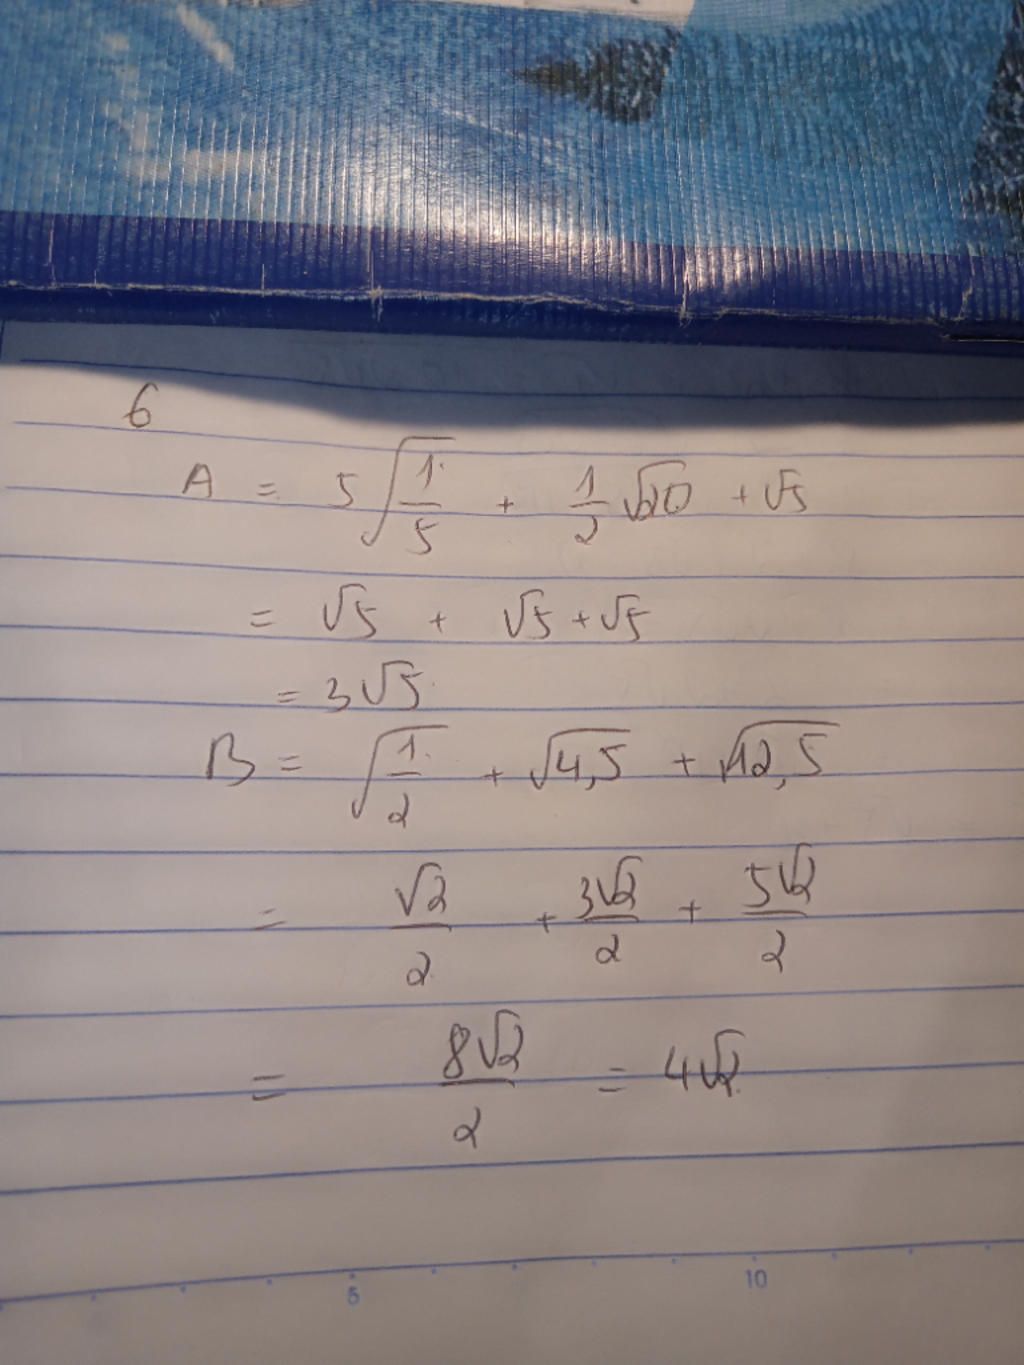 6
A = 5√(1/5) + 1/2 √20 + √5
= √5 + √5 + √5
= 3√5
B = √(1/2) + √4,5 + √12,5
= √2/2 + 3√2/2 + 5√2/2
= 8√2/2 = 4√2
5 10